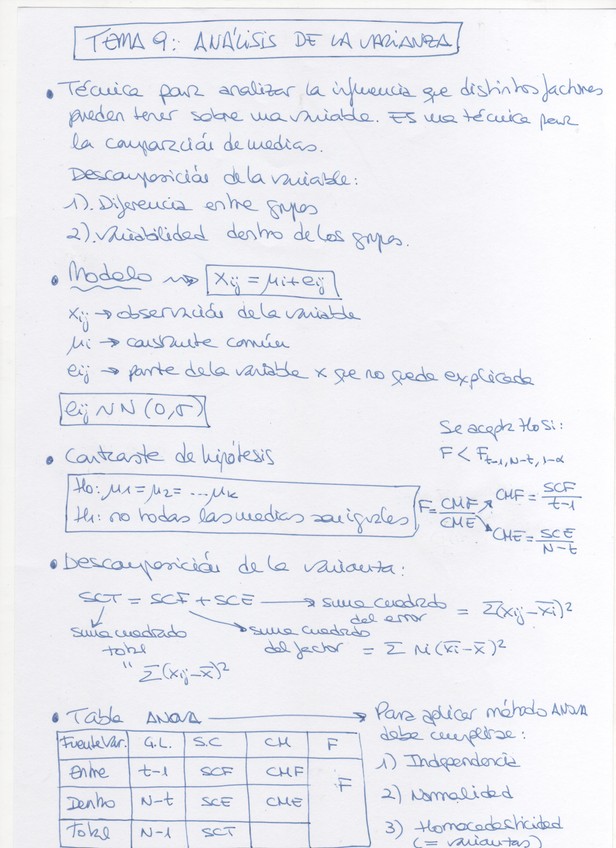 TEMA 9:: ANÁLISIS DE LA VARIANZA
• Técnica para analizar la influencia que distintos factores
pueden tener sobre una variable. Es una técnica para
la comparación de medias.
Descomposición de la variable:
1). Diferencia entre grupos
2). Variabilidad dentro de los grupos.
• Modelo ⇝ Xij = μi + eij
Xij → observación de la variable
μi → constante común
eij → parte de la variable x que no queda explicada
eij ~ N (0, σ)
Se acepta Ho si:
F < F t-1, N-t, 1-α
• Contraste de hipótesis
Ho: μ1 = μ2 = ... μk
H1: no todas las medias son iguales
F = CMF / CME
CMF = SCF / t-1
CME = SCE / N-t
• Descomposición de la varianza:
SCT = SCF + SCE → suma cuadrado del error = Σ(xij - x̄i)²
suma cuadrado total
" Σ(xij - x̄)²
suma cuadrado del factor = Σ Ni (x̄i - x̄)²
• Tabla ANOVA → Para aplicar método ANOVA
debe cumplirse:
Fuente Var. G.L. S.C CM F
Entre t-1 SCF CMF F
Dentro N-t SCE CME
Total N-1 SCT
1) Independencia
2) Normalidad
3) Homocedasticidad
(= varianzas)